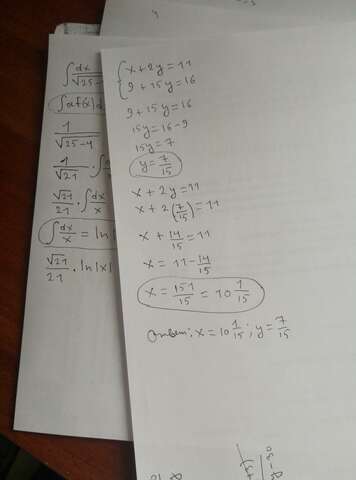 ∫dx/√25-
∫af(x)d
1/√25-4
1/√21 · ∫
√21/21 · ∫dx/x
∫dx/x = ln|
√21/21 · ln|x|
{x+2y=11
9+15y=16
9+15y=16
15y=16-9
15y=7
y=7/15
x+2y=11
x+2(7/15)=11
x+14/15=11
x=11-14/15
x=151/15=10 1/15
Ответ: x=10 1/15; y=7/15